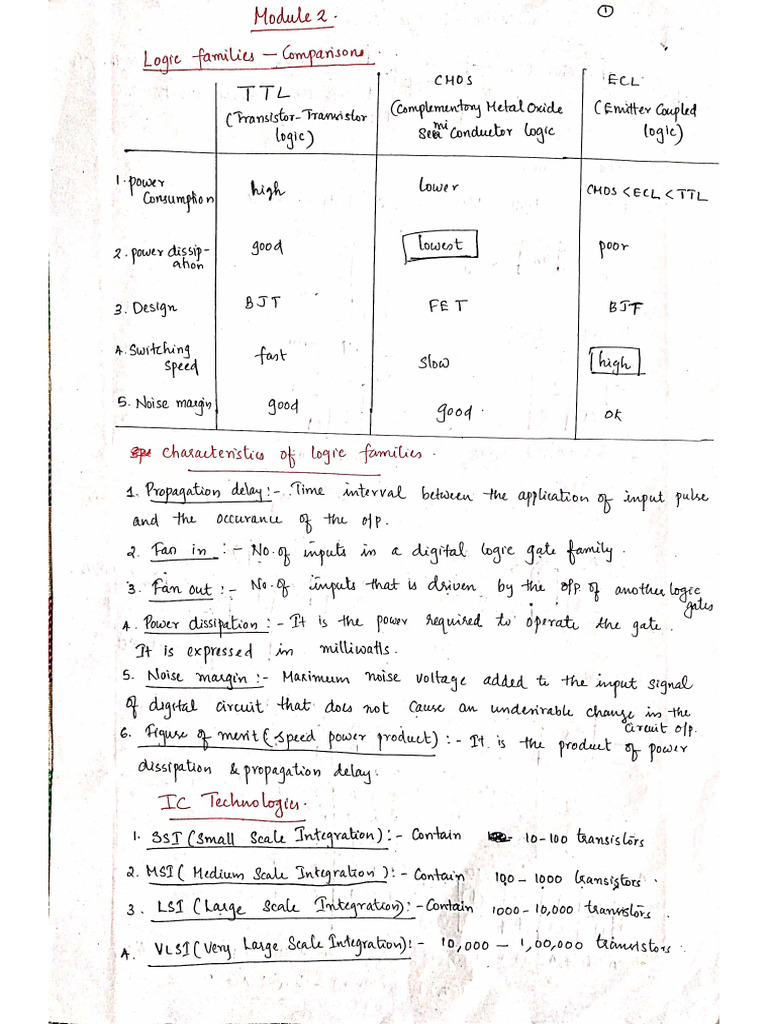 Module 2.
1
Logic families – Comparisons.
TTL
(Transistor-Transistor
logic)
CMOS
(Complementory Metal Oxide
Semi Conductor logic
ECL
(Emitter Coupled
logic)
1. power
Consumption
high
lower
CMOS < ECL < TTL
2. power dissip-
ation
good
lowest
poor
3. Design
BJT
FET
BJT
4. Switching
speed
fast
slow
high
5. Noise margin
good
good.
ok
Characteristics of logic families.
1. Propagation delay:- Time interval between the application of input pulse
and the occurance of the o/p.
2. Fan in :- No. of inputs in a digital logic gate family.
3. Fan out :- No. of inputs that is driven by the o/p. of another logic
gates
4. Power dissipation :- It is the power required to operate the gate.
It is expressed in milliwatts.
5. Noise margin :- Maximum noise voltage added to the input signal
of digital circuit that does not cause an undesirable change in the
circuit o/p.
6. Figure of merit (speed power product) :- It is the product of power
dissipation & propagation delay.
IC Technologies.
1. SSI (Small Scale Integration) :- Contain 10-100 transistors
2. MSI ( Medium Scale Integration ) :- Contain 100 – 1000 transistors.
3. LSI (Large Scale Integration) :- Contain 1000 - 10,000 transistors.
4. VLSI (Very Large Scale Integration) :- 10,000 – 1,00,000 transistors.